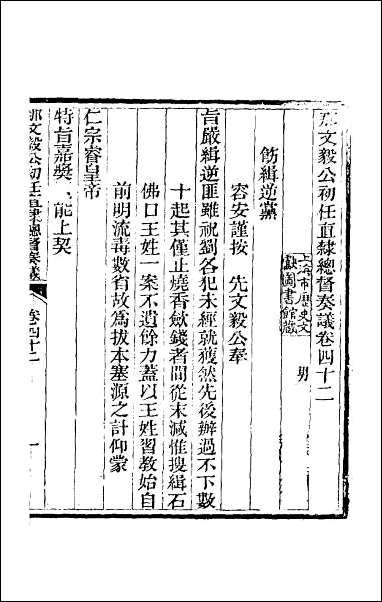 那文毅公初任直隸總督奏議卷四十二
上海市歷史文
獻圖書館藏
男
飭緝逆黨
容安謹按　先文毅公奉
旨嚴緝逆匪雖祝劉各犯未經就獲然先後辦過不下數
十起其僅止燒香斂錢者間從末減惟搜緝石
佛口王姓一案不遺餘力蓋以王姓習教始自
前明流毒數省故為拔本塞源之計仰蒙
仁宗睿皇帝
特旨嘉獎
能上契
那文毅公初任直隸總督奏議
卷四十二
一